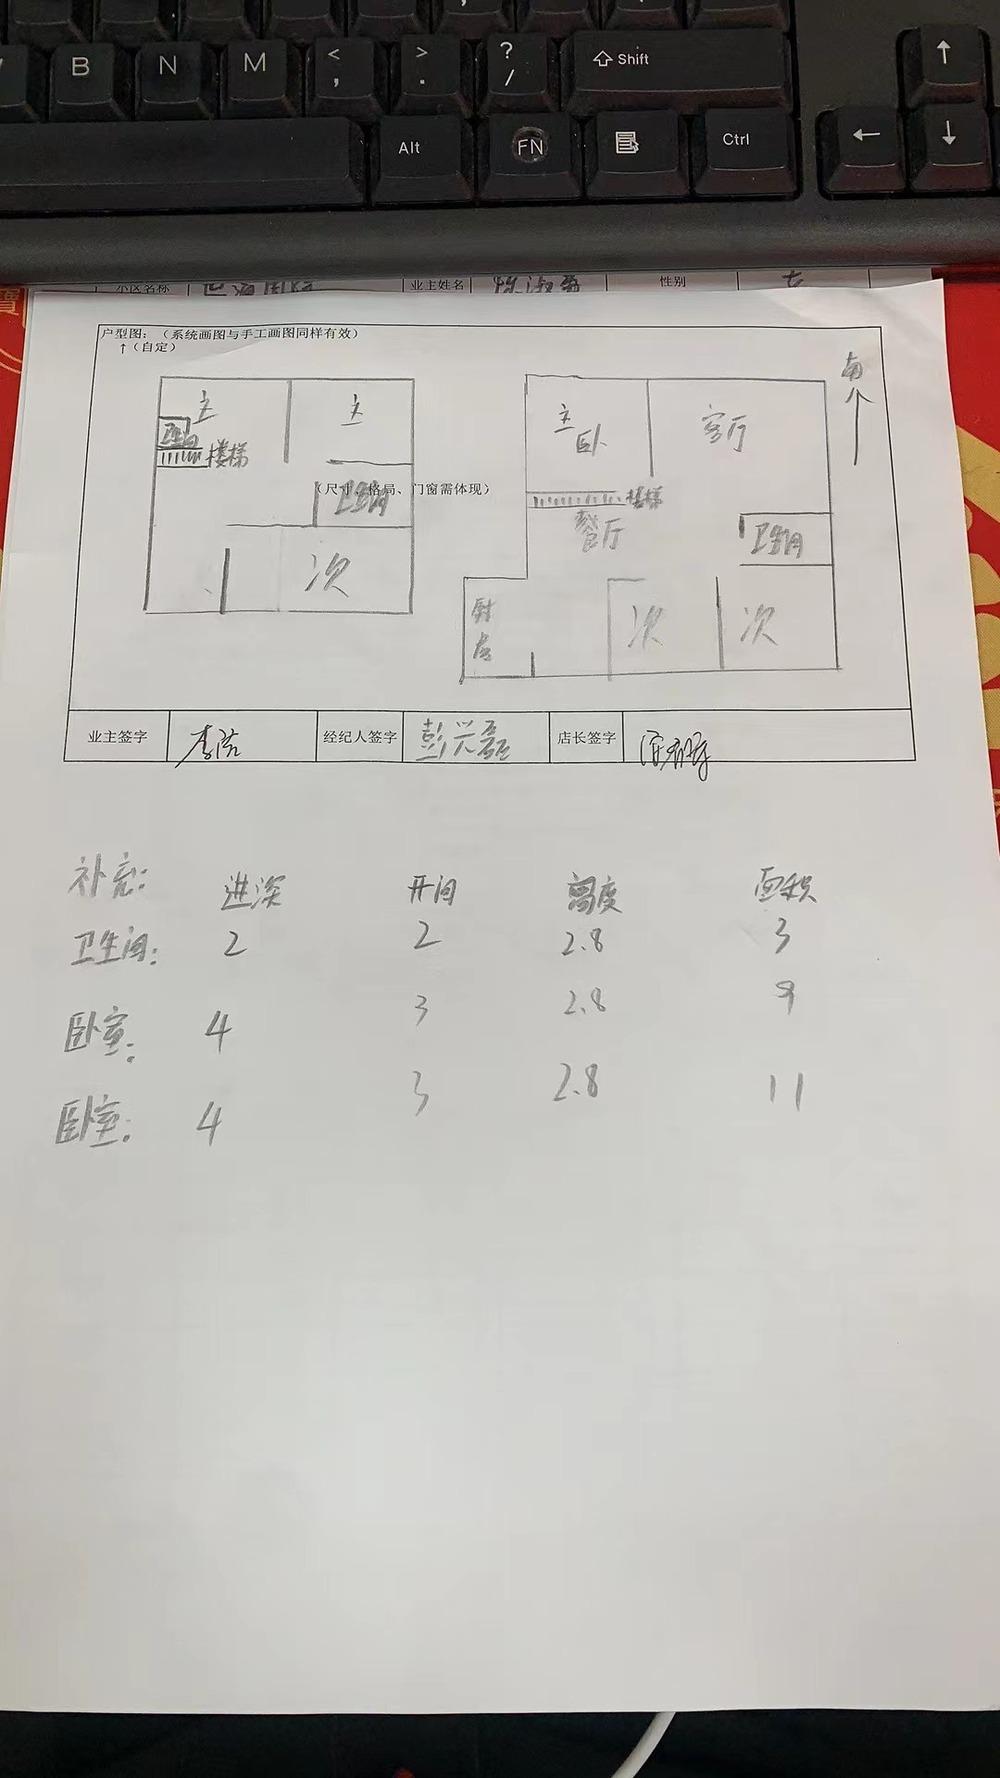 B N M < , > . ? / Shift ↑
Alt FN Ctrl ← ↓
小区名称 业主姓名 性别
户型图：（系统画图与手工画图同样有效）
↑（自定）
南
主 主
卫间
楼梯
（尺寸、格局、门窗需体现）
卫生间
次
主卧 客厅
楼梯
餐厅
卫生间
厨房 次 次
业主签字 经纪人签字 彭兴磊 店长签字
补充: 进深 开间 高度 面积
卫生间: 2 2 2.8 3
卧室: 4 3 2.8 9
卧室: 4 3 2.8 11